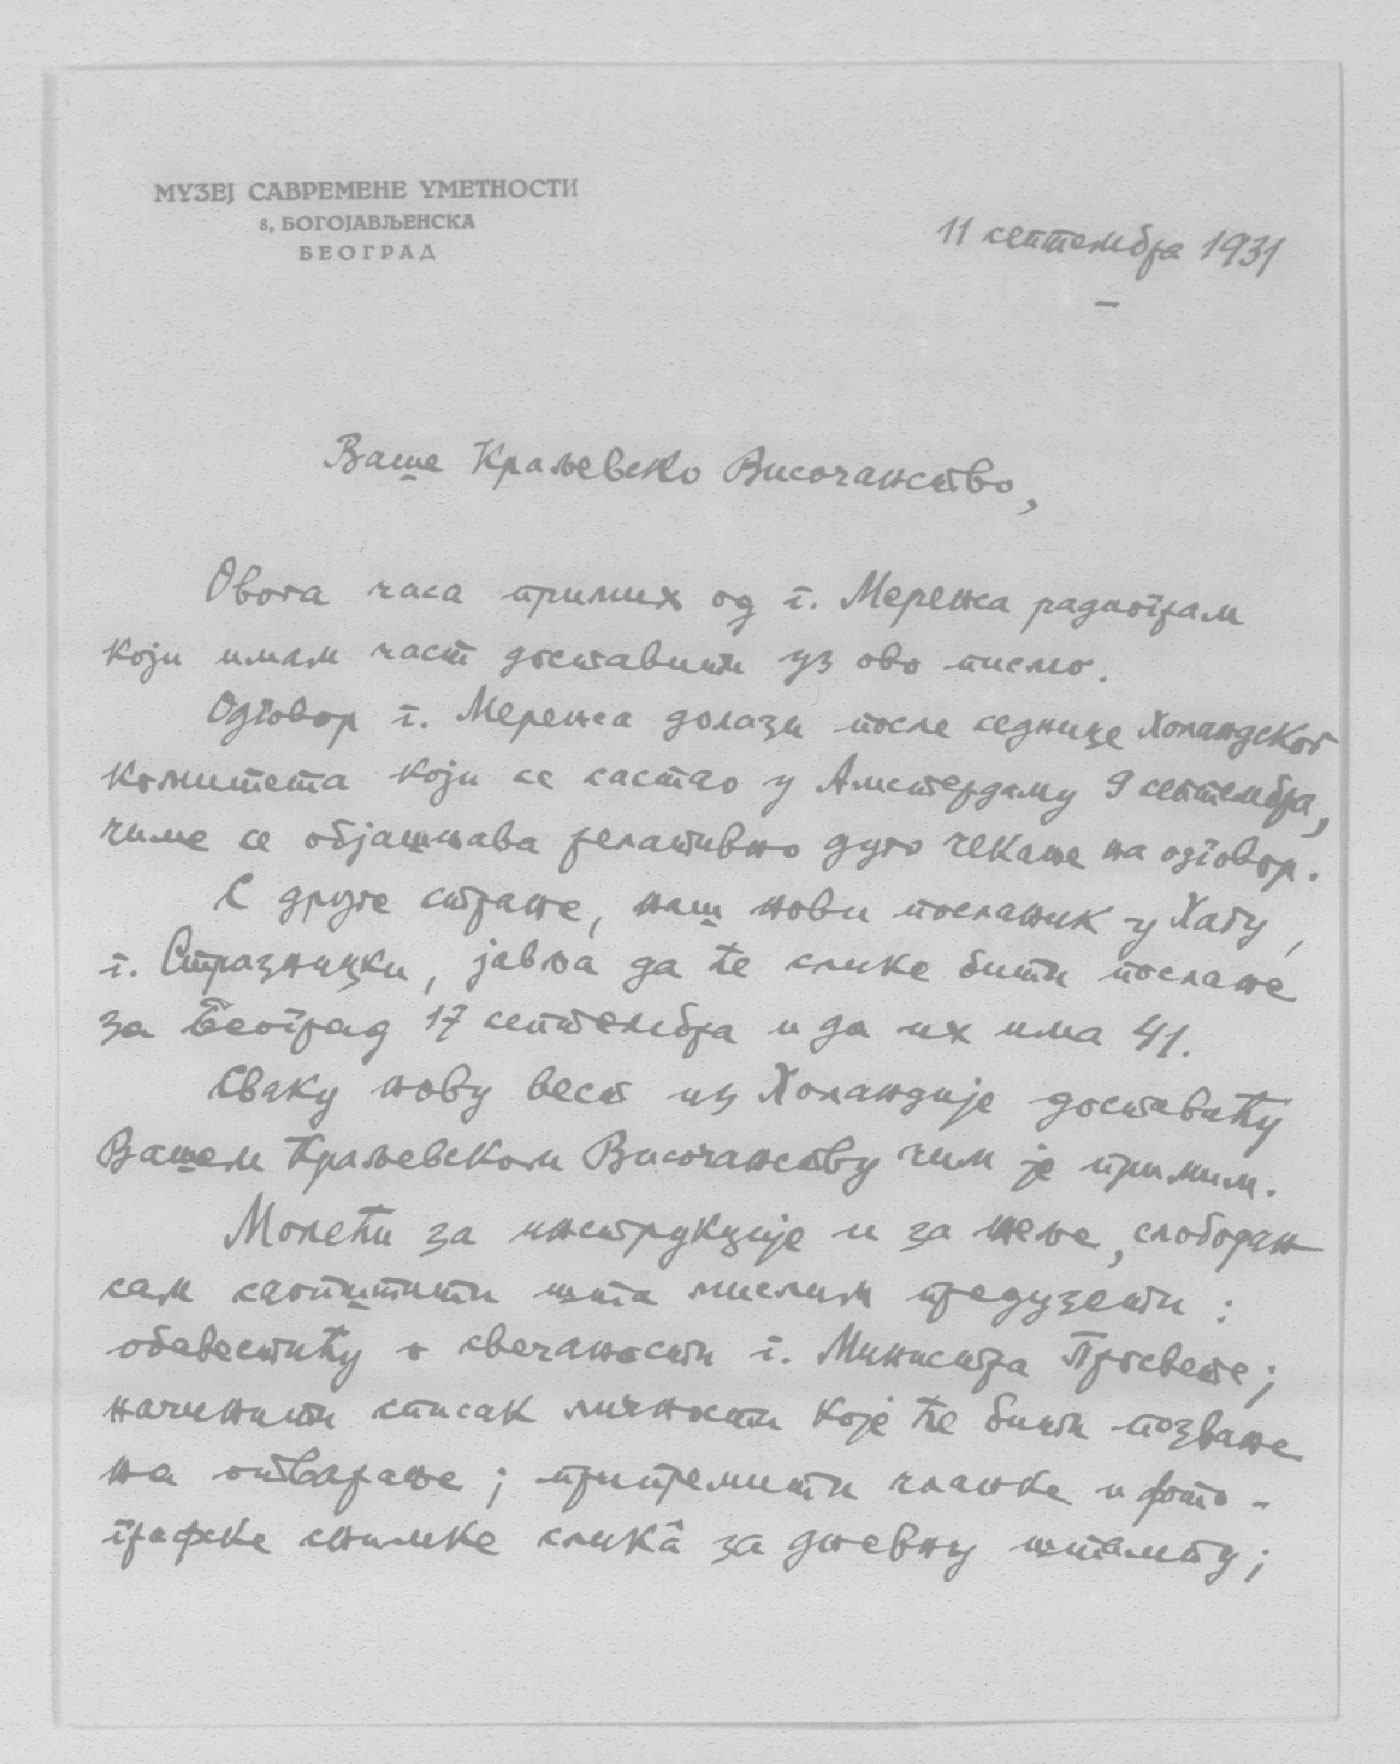 МУЗЕЈ САВРЕМЕНЕ УМЕТНОСТИ
8, БОГОЈАВЉЕНСКА
БЕОГРАД
11 септембра 1931
Ваше Краљевско Височанство,
Овога часа примих од г. Меренса радиограм
који имам част доставити уз ово писмо.
Одговор г. Меренса долази после седнице Холандског
комитета који се састао у Амстердаму 9 септембра,
чиме се објашњава релативно дуго чекање на одговор.
С друге стране, наш нови посланик у Хагу,
г. Стразницки, јавља да ће слике бити послане
за Београд 17 септембра и да их има 41.
Сваку нову вест из Холандије доставићу
Вашем Краљевском Височанству чим је примим.
Молећи за инструкције и за жеље, слободан
сам саопштити шта мислим предузети:
обавестићу о свечаности г. Министра Просвете;
начинити списак личности које ће бити позване
на отварање; припремити чланке и фото-
графске снимке сликâ за дневну штампу;